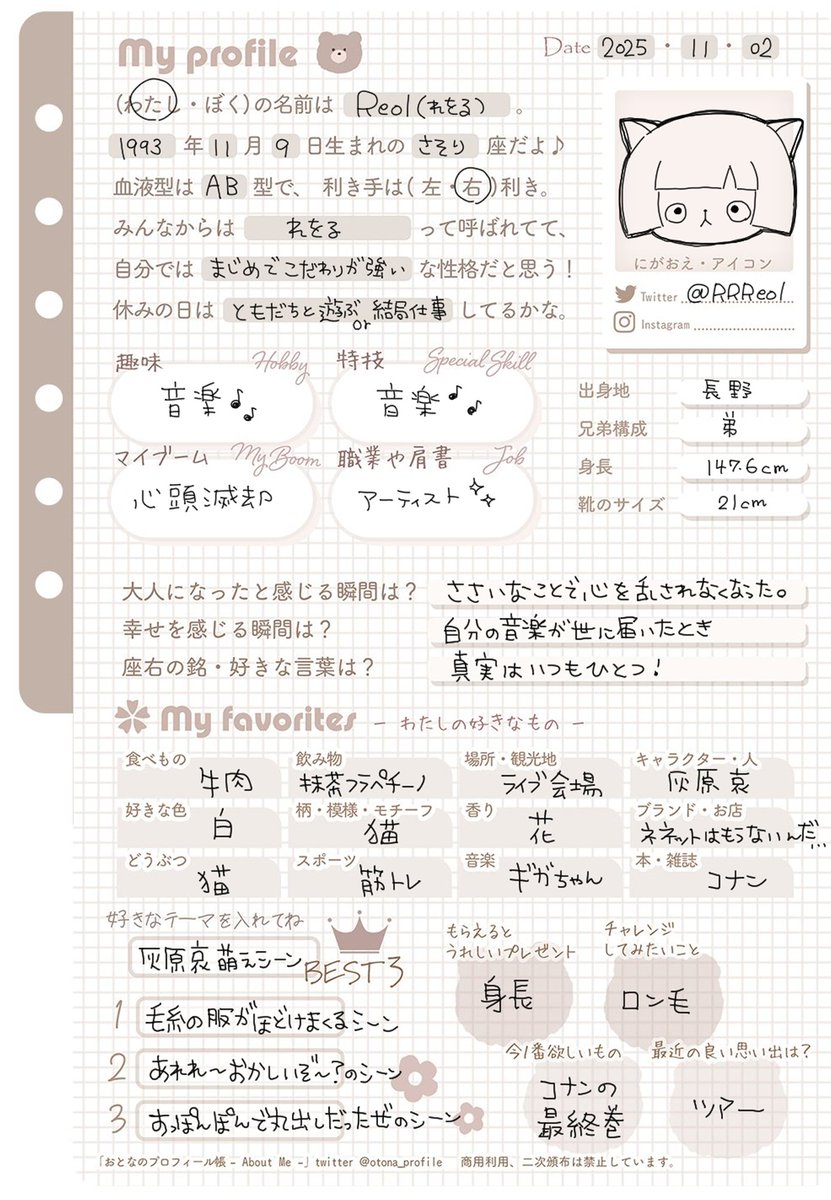 My profile
Date 2025・11・02
(わたし・ぼく)の名前は Reol(れをる)。
1993年11月9日生まれのさそり座だよ♪
血液型はAB型で、利き手は(左・右)利き。
みんなからは れをる って呼ばれてて、
自分では まじめでこだわりが強い な性格だと思う！
休みの日は ともだちと遊ぶ or 結局仕事 してるかな。
にがおえ・アイコン
Twitter @RRReol
Instagram
趣味 Hobby
音楽♪♪
特技 Special Skill
音楽♪♪
マイブーム My Boom
心頭滅却
職業や肩書 Job
アーティスト
出身地 長野
兄弟構成 弟
身長 147.6cm
靴のサイズ 21cm
大人になったと感じる瞬間は？ ささいなことで心を乱されなくなった。
幸せを感じる瞬間は？ 自分の音楽が世に届いたとき
座右の銘・好きな言葉は？ 真実はいつもひとつ！
My favorites － わたしの好きなもの －
食べもの 牛肉
飲み物 抹茶フラペチーノ
場所・観光地 ライブ会場
キャラクター・人 灰原哀
好きな色 白
柄・模様・モチーフ 猫
香り 花
ブランド・お店 ネネットはもうないんだ…
どうぶつ 猫
スポーツ 筋トレ
音楽 ギガちゃん
本・雑誌 コナン
好きなテーマを入れてね
灰原哀萌えシーン
BEST3
1 毛糸の服がほどけまくるシーン
2 あれれ〜おかしいぞ〜？のシーン
3 すっぽんぽんで丸出しだったぜのシーン
もらえると
うれしいプレゼント
身長
チャレンジ
してみたいこと
ロン毛
今1番欲しいもの
コナンの
最終巻
最近の良い思い出は？
ツアー
「おとなのプロフィール帳 – About Me –」twitter @otona_profile 商用利用、二次頒布は禁止しています。